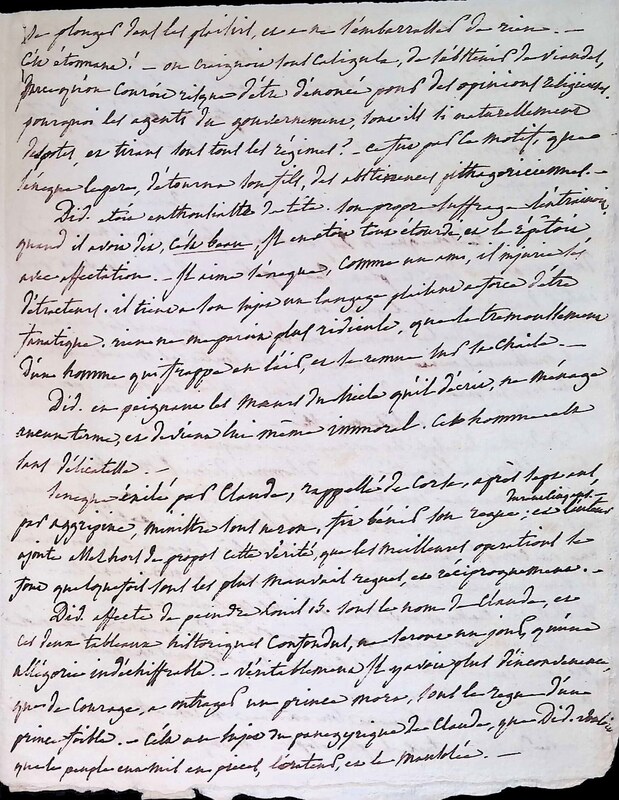 se plonger dans les plaisirs, et a ne s'embarrasser de rien. —
C'est étonnant! — on craignoit sous Caligula, de s'abstenir de viandes,
parcequ'on couroit risque d'etre dénoncé pour des opinions religieuses.
pourquoi les agents du gouvernement, sont-ils si naturellement
despotes, et tirans sous tous les régimes? — ce fut par ce motif, que
Seneque le pere, détourna son fils, des abstinences pithagoriciennes. —
Did. etoit enthousiaste de tête. Son propre suffrage l'entrainoit,
quand il avoit dit, c'est beau, Il en etoit tout étourdi, et le répétoit
avec affectation. — Il aime Séneque, comme un ami, il injurie ses
détracteurs. il tient a son sujet un langage plaisant a force d'être
fanatique. rien ne me paroit plus ridicule, que le tremoussement
d'un homme qui frappe en l'air, et se remue sur sa chaise. —
Did. en peignant les Mœurs du siecle qu'il décrit, ne ménage
aucun terme, et devient lui même immoral. Cet homme est
sans délicatesse. —
Seneque éxilé par Claude, rappellé de Corse, après sept ans,
par aggripine, ministre sous neron, fit bénir son regne; et l'auteur
ajoute Mal hors de propos cette vérité, que les meilleures operations se
font quelquefois sous les plus mauvais regnes, et réciproquement. —
Did. affecte de peindre Louis 15. sous le nom de Claude, et
ces deux tableaux historiques confondus, ne seront un jour, qu'une
allégorie indéchiffrable. — Véritablement Il y avoit plus d'inconvenance,
que de courage, a outrager un prince mort, sous le regne d'un
prince foible. — C'est au sujet du panegyrique de Claude, que Did.
que le peuple en